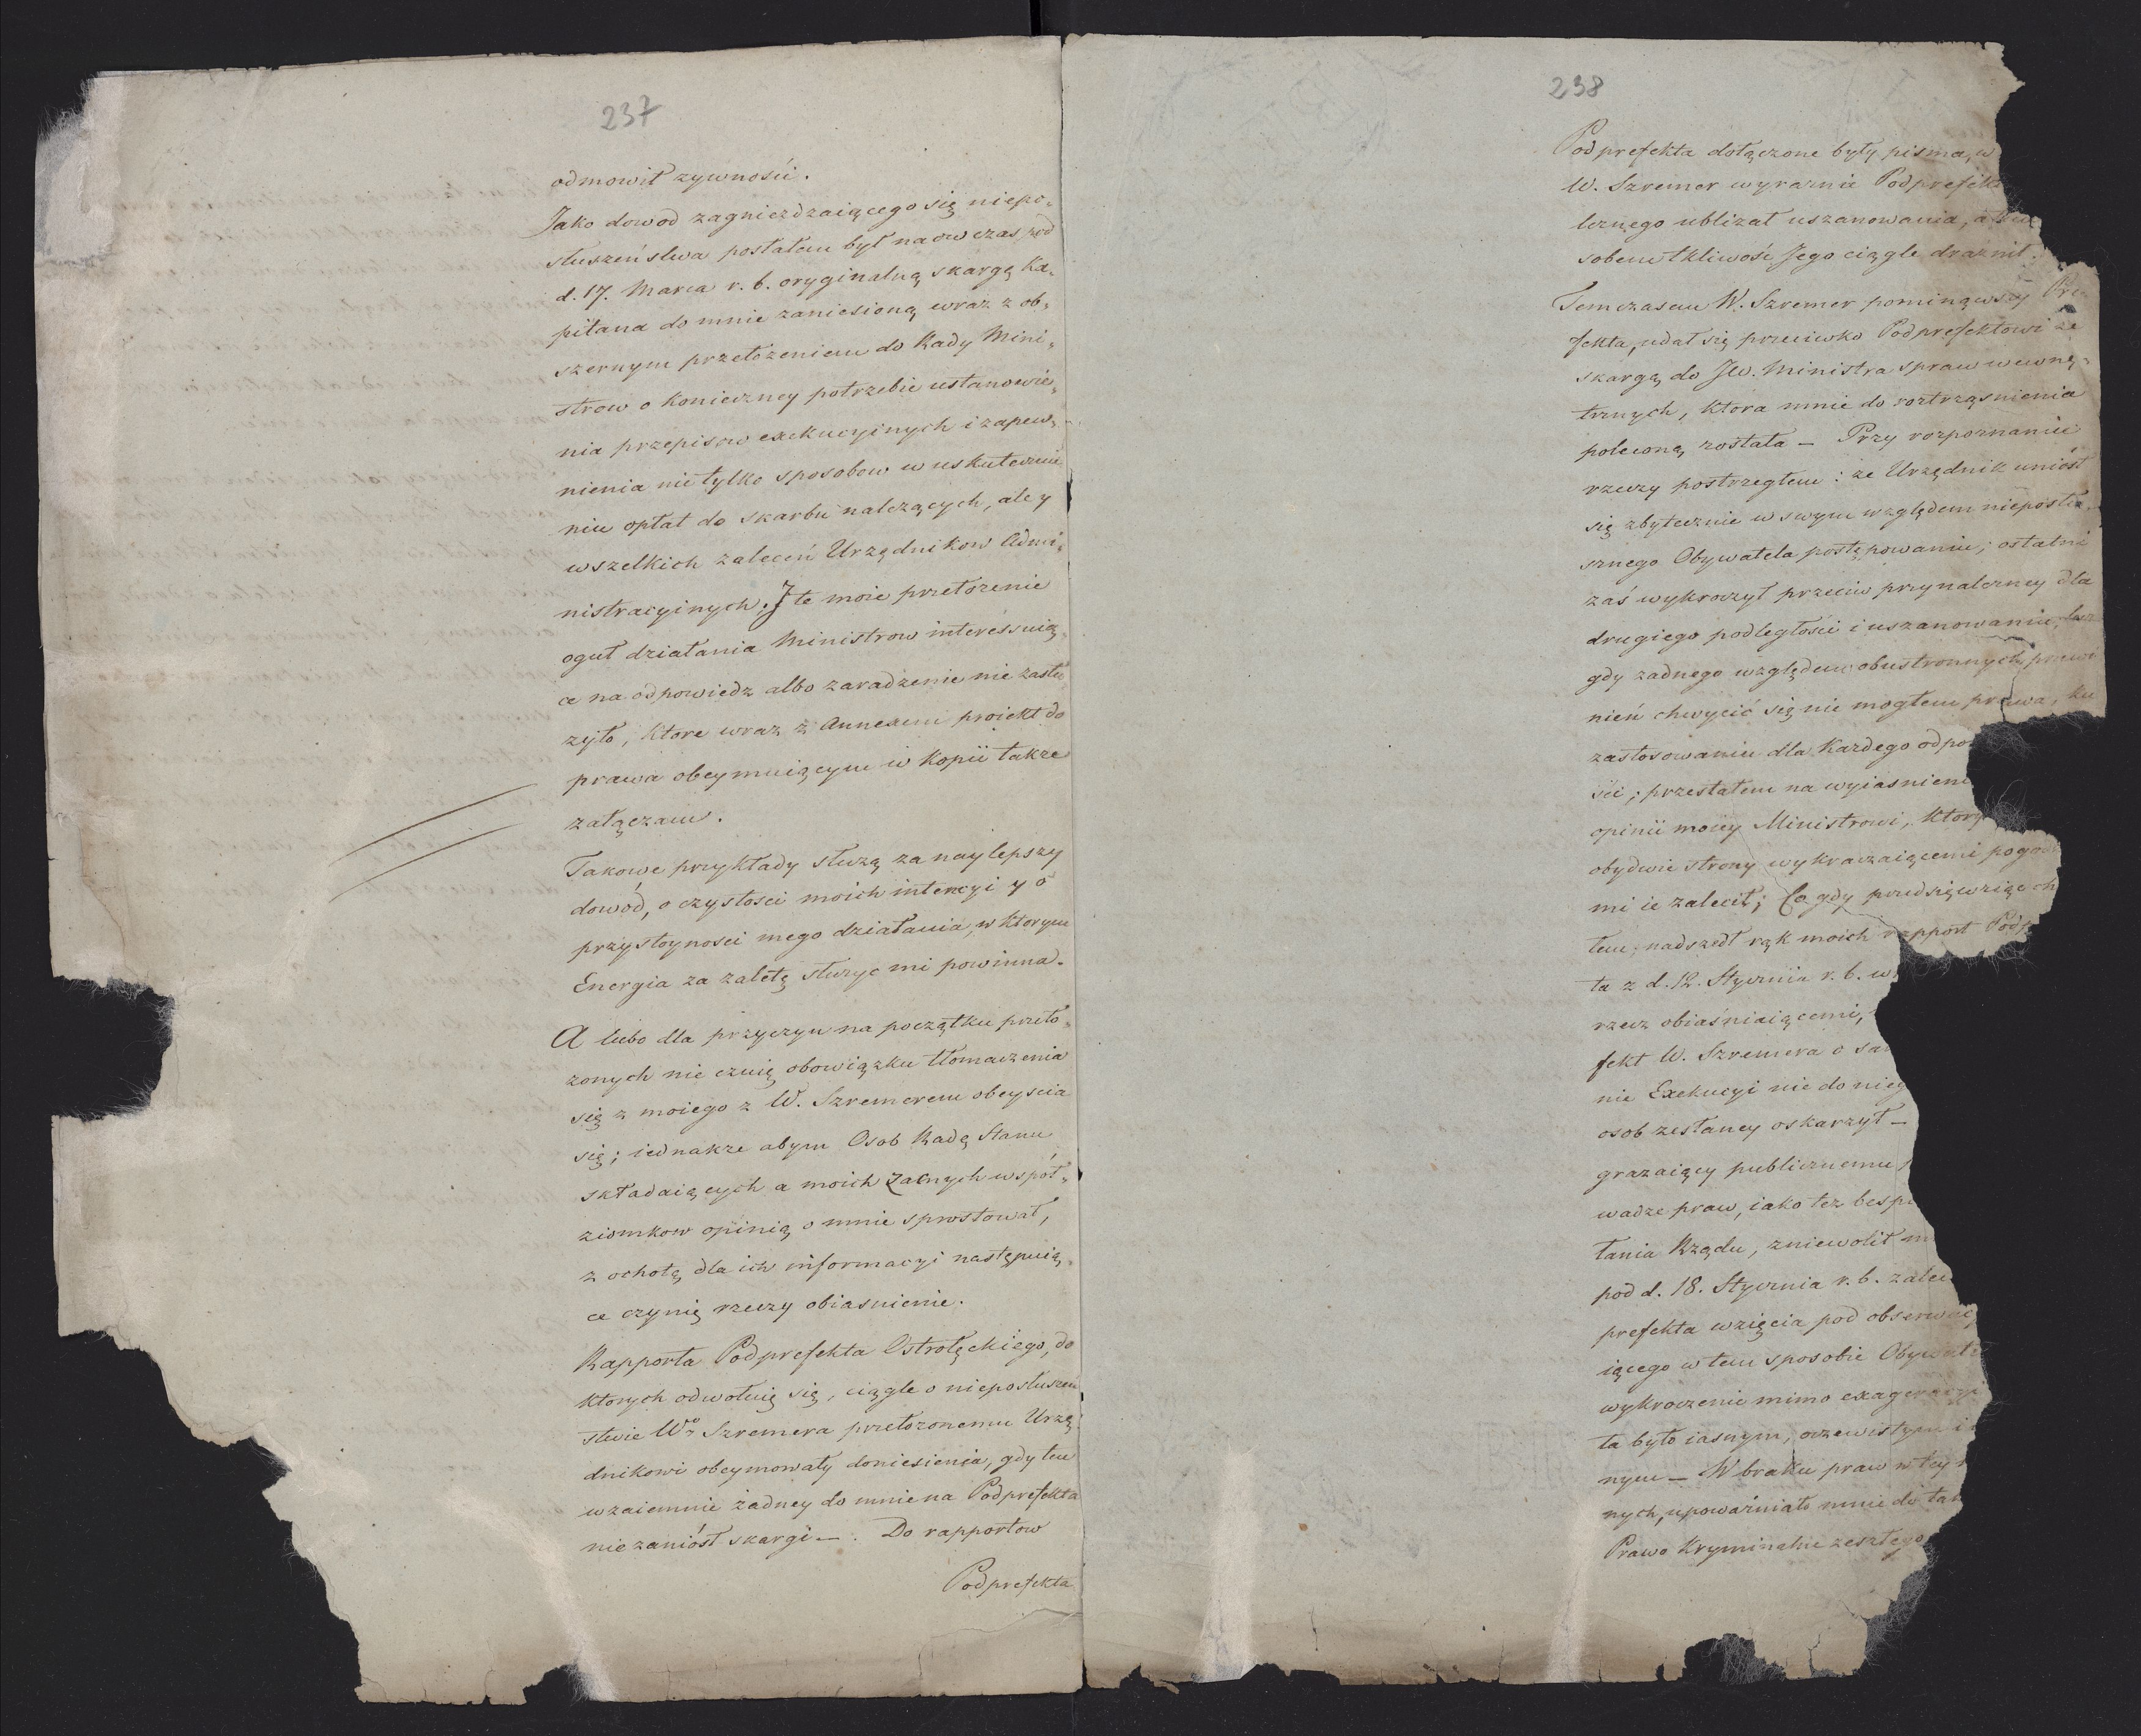 237
odmowił zywnosći.
Jako dowod zagniezdzaiącego się niepo-
słuszeństwa posłałem był na ow czas pod
d. 17. Marca r. b. oryginalną skargę Ka-
pitana do mnie zaniesioną wraz z ob-
szernym przełozeniem do Rady Mini-
strow o konieczney potrzebie ustanowie-
nia przepisow exekucyinych i zapew-
nienia nie tylko sposobow w uskuteczni
niu opłat do skarbu nalezących, ale y
wszelkich zaleceń Urzędnikow Admi-
nistracyinych. J te moie przełozenie
oguł działania Ministrow interessuią-
ce na odpowiedz albo zaradzenie nie zasłu
zyło, ktore wraz z Annexem proiekt do
prawa obeymuiącym w kopii takze
załączam.
Takowe przykłady słuzą za naylepszy
dowód, o czystosci moich intencyi y o
przystoynosci mego działania, w ktorym
Energia za zaletę słuzyc mi powinna.
A lubo dla przyczyn na początku przeło-
zonych nie czuię obowiązku tłomaczenia
się z moiego z W. Szremerem obeyscia
się; iednakze abym Osob Radę Stanu
składaiących a moich zacnych wspoł-
ziomkow opinią o mnie sprostował,
z ochotą dla ich informacyi następuią-
ce czynię rzeczy obiasnienie.
Rapporta Podprefekta Ostrołęckiego, do
ktorych odwołuię się, ciągle o nieposłuszeń
stwie Wo Szremera przełozonemu Urzę-
dnikowi obeymowały doniesienia, gdy ten
wzaiemnie żadney do mnie na Podprefekta
nie zaniósł skargi —. Do rapportow
Podprefekta
238
Podprefekta dołączone były pisma, w
W. Szremer wyraznie Podprefekt
licznego ublizał uszanowania, a
sobem tkliwość Jego ciągle draznił.
Temczasem W. Szremer pominąwszy Pre-
fekta, udał się przeciwko Podprefektowi ze
skargą do JW. Ministra spraw wewnę-
trznych, ktora mnie do roztrząsnienia
poleconą została — Przy rozpoznaniu
rzeczy postrzegłem: że Urzędnik uniósł
się zbytecznie w swym względem nieposłu-
sznego Obywatela postępowaniu; ostatni
zaś wykroczył przeciw przynalezney dla
drugiego podległości i uszanowaniu, lecz
gdy zadnego względem obustronnych przewi
nień chwycić się nie mogłem prawa, ku
zastosowaniu dla Kazdego odpo
ści; przestałem na wyiasnieni
opinii moiey Ministrowi, ktory
obydwie strony wykraczaiącemi pogod
mi ie zalecił; Co gdy przedsięwziąć ch
łem, nadszedł rąk moich rapport Podp
ta z d. 12. Stycznia r. b. w
rzecz obiaśniaiącemi,
fekt W. Szremera o sa
nie Exekucyi nie do nieg
osob zesłaney oskarzył —
grazaiący publicznemu
wadze praw, iako tez besp
łania Rządu, zniewolił m
pod d. 18. Stycznia r. b. zalec
prefekta wzięcia pod obserwac
iącego w tem sposobie Obywat
wykroczenie mimo exageracyi
ta było iasnym, oczewistym i
nym — W braku praw w tey
nych, upoważniało mnie do tak
Prawo Kryminalne zeszłego